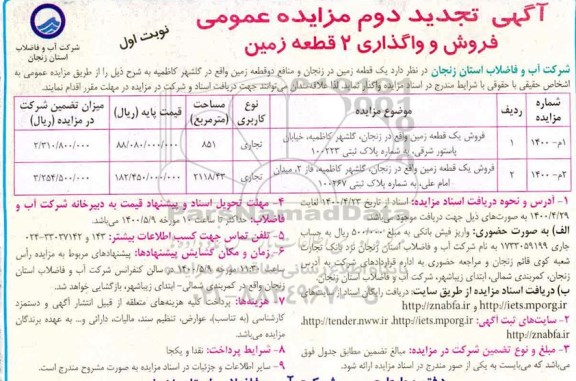 آگهی تجدید دوم مزایده عمومی
فروش و واگذاری ۲ قطعه زمین
نوبت اول
شرکت آب و فاضلاب
استان زنجان
شرکت آب و فاضلاب استان زنجان در نظر دارد یک قطعه زمین در زنجان و منافع دوقطعه زمین واقع در گلشهر کاظمیه به شرح ذیل را از طریق مزایده عمومی به
اشخاص حقیقی یا حقوقی با شرایط مندرج در اسناد مزایده واگذار نماید. لذا علاقمندان می‌توانند جهت دریافت اسناد و شرکت در مزایده در مهلت مقرر اقدام نمایند.
شماره مزایده ردیف موضوع مزایده نوع کاربری مساحت (مترمربع) قیمت پایه (ریال) میزان تضمین شرکت در مزایده (ریال)
۱م-۱۴۰۰ ۱ فروش یک قطعه زمین واقع در زنجان، گلشهر کاظمیه، خیابان پاستور شرقی، به شماره پلاک ثبتی ۱۰۰۲۲۳ تجاری ۸۵۱ ۸۸/۰۸۰/۰۰۰/۰۰۰ ۲/۳۱۰/۸۰۰/۰۰۰
۲م-۱۴۰۰ ۲ فروش یک قطعه زمین واقع در زنجان، گلشهر کاظمیه، فاز ۳، میدان امام علی، به شماره پلاک ثبتی ۱۰۰۲۶۷ تجاری ۲۱۱۸/۴۳ ۱۸۲/۴۵۰/۰۰۰/۰۰۰ ۳/۲۵۴/۵۰۰/۰۰۰
۱- آدرس و نحوه دریافت اسناد مزایده: اسناد از تاریخ ۱۴۰۰/۴/۲۳ لغایت
۱۴۰۰/۴/۲۹ به صورت‌های ذیل جهت دریافت موجود می‌باشد.
الف) به صورت حضوری: واریز فیش بانکی به مبلغ ۵۰۰/۰۰۰ ریال به حساب
جاری ۱۷۳۳۰۵۹۱۹۹ به نام شرکت آب و فاضلاب استان زنجان نزد بانک تجارت
شعبه کوی قائم زنجان و مراجعه حضوری به اداره قراردادهای شرکت به آدرس:
زنجان، کمربندی شمالی، ابتدای زیباشهر، شرکت آب و فاضلاب استان زنجان.
ب) دریافت اسناد مزایده از طریق سایت: دریافت رایگان اسناد از سایت‌های
http://iets.mporg.ir و http://znabfa.ir
۲- سایت‌های ثبت آگهی: http://iets.mporg.ir، http://tender.nww.ir،
http://znabfa.ir
۳- مبلغ و نوع تضمین شرکت در مزایده: مبالغ تضمین مطابق جدول فوق
می‌باشد که می‌بایست به یکی از صور مندرج در اسناد مزایده ارائه شود.
۴- مهلت تحویل اسناد و پیشنهاد قیمت به دبیرخانه شرکت آب و
فاضلاب: حداکثر تا ساعت مورخه ۱۴۰۰/۵/۹ می‌باشد.
۵- تلفن تماس جهت کسب اطلاعات بیشتر: ۱۴۳ و ۳۳۰۳۷۱۴۲-۰۲۴
۶- زمان و مکان گشایش پیشنهادها: پیشنهادهای مربوط به مزایده رأس
ساعت ۱۱:۳۰ مورخ ۱۴۰۰/۵/۱۰ در سالن کنفرانس شرکت آب و فاضلاب استان
زنجان واقع در کمربندی شمالی- ابتدای زیباشهر، بازگشایی خواهد شد.
۷- هزینه‌ها: پرداخت کلیه هزینه‌های متعلقه از قبیل انتشار آگهی و دستمزد
کارشناسی (به تناسب)، عوارض، تنظیم سند، مالیات، دارائی و... به عهده برندگان
مزایده می‌باشد.
۸- شرایط پرداخت: نقدا و یکجا
۹- سایر اطلاعات و جزئیات در اسناد مزایده به صورت مشروح مندرج است.